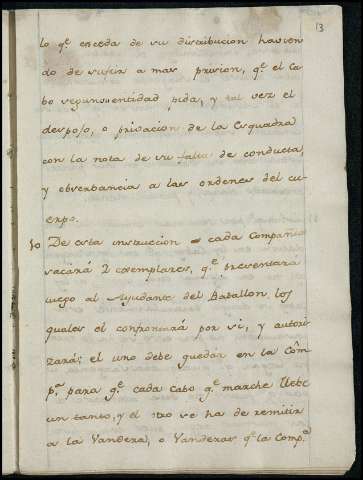 13
lo q.e exceda de su distribucion havien
do de sufrir a mas prision, q.e el Ca
bo segun su entidad pida, y tal vez el
despojo, o privacion de la Esquadra
con la nota de su falta de conducta,
y observancia a las ordenes del cu
erpo.
De esta instruccion cada Compañia
sacará 2 exemplares, q.e presentará
luego al Ayudante del Batallon, los
quales el confrontará por si, y autori
zará; el uno debe quedar en la Com
p.a para q.e cada cabo q.e marche llebe
un tanto, y el otro se ha de remitir
a la Vandera, o Vanderas q.e la Comp.a